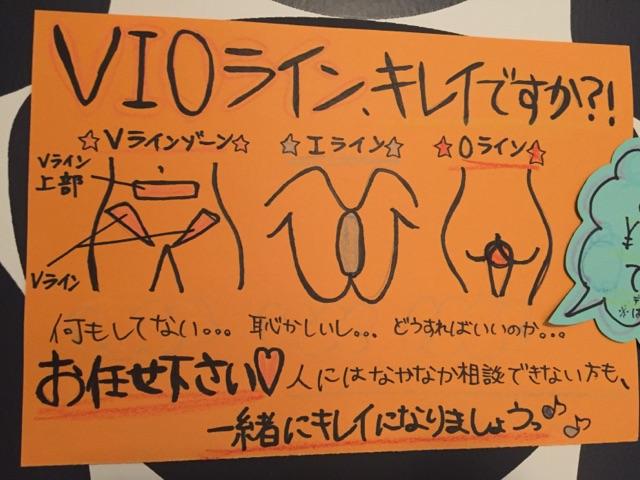 VIOライン、キレイですか?!
☆Vラインゾーン☆
☆Iライン☆
☆Oライン☆
Vライン
上部
Vライン
何もしてない。。。 恥かしいし。。。 どうすればいいのか。。。
お任せ下さい♡人にはなかなか相談できない方も、
一緒にキレイになりましょうっ♪♪